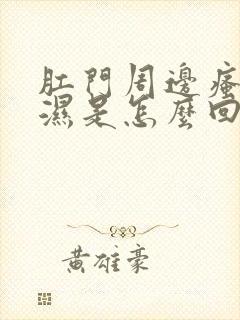 肛門周邊瘙
濕是怎麼回
黃雄豪